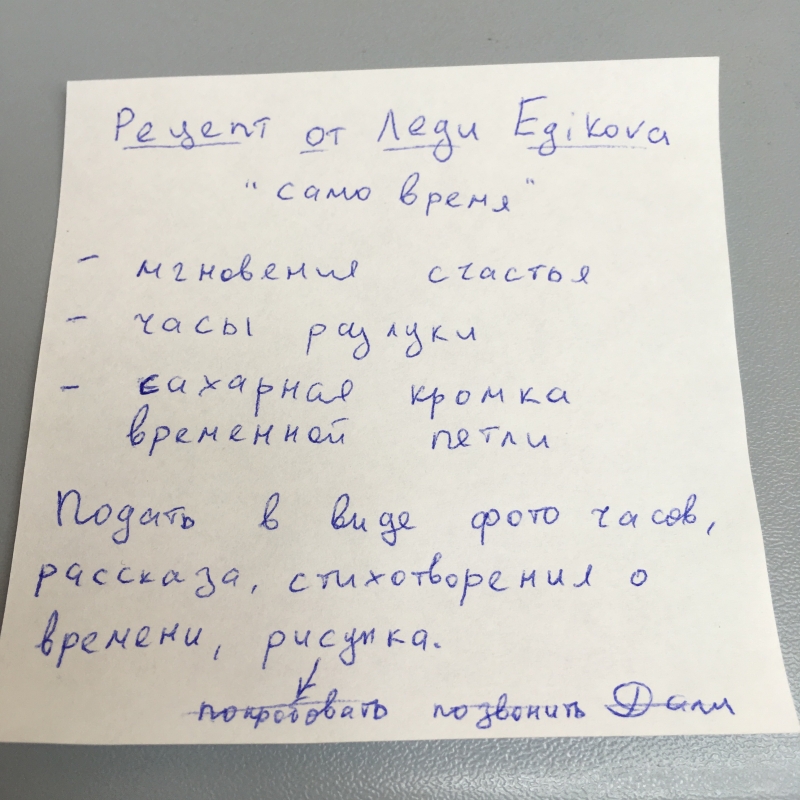 Рецепт от Леди Egikova
"само время"
- мгновения счастья
- часы разлуки
- сахарная кромка
временной петли
Подать в виде фото часов,
рассказа, стихотворения о
времени, рисунка.
попробовать позвонить Дали